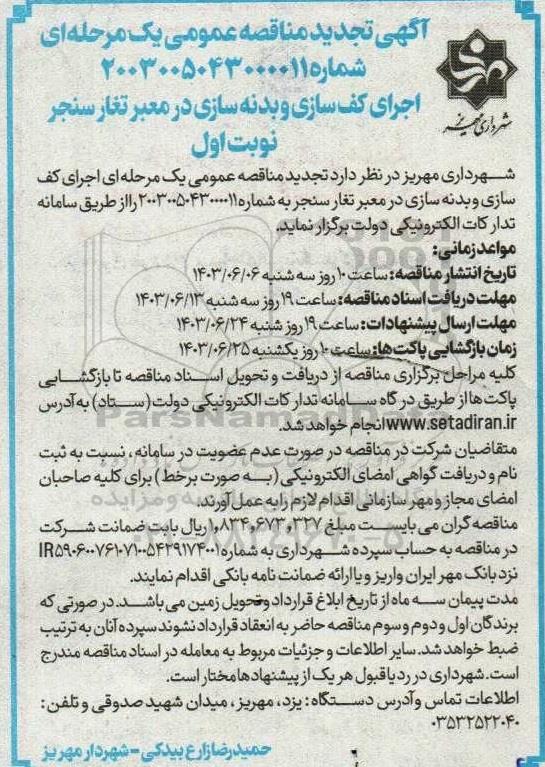 آگهی تجدید مناقصه عمومی یک مرحله‌ای
شماره ۲۰۰۳۰۰۵۰۴۳۰۰۰۰۱۱
اجرای کف سازی و بدنه سازی در معبر تغار سنجر
نوبت اول
شهرداری مهریز
شهرداری مهریز در نظر دارد تجدید مناقصه عمومی یک مرحله ای اجرای کف
سازی و بدنه سازی در معبر تغار سنجر به شماره ۲۰۰۳۰۰۵۰۴۳۰۰۰۰۱۱ را از طریق سامانه
تدارکات الکترونیکی دولت برگزار نماید.
مواعد زمانی:
تاریخ انتشار مناقصه: ساعت ۱۰ روز سه شنبه ۱۴۰۳/۰۶/۰۶
مهلت دریافت اسناد مناقصه: ساعت ۱۹ روز سه شنبه ۱۴۰۳/۰۶/۱۳
مهلت ارسال پیشنهادات: ساعت ۱۹ روز شنبه ۱۴۰۳/۰۶/۲۴
زمان بازگشایی پاکت‌ها: ساعت ۱۰ روز یکشنبه ۱۴۰۳/۰۶/۲۵
کلیه مراحل برگزاری مناقصه از دریافت و تحویل اسناد مناقصه تا بازگشایی
پاکت‌ها از طریق در گاه سامانه تدارکات الکترونیکی دولت (ستاد) به آدرس
www.setadiran.ir انجام خواهد شد.
متقاضیان شرکت در مناقصه در صورت عدم عضویت در سامانه، نسبت به ثبت
نام و دریافت گواهی امضای الکترونیکی (به صورت برخط) برای کلیه صاحبان
امضای مجاز و مهر سازمانی اقدام لازم را به عمل آورند.
مناقصه گران می بایست مبلغ ۱,۸۳۴,۶۷۳,۳۲۷ ریال بابت ضمانت شرکت
در مناقصه به حساب سپرده شهرداری به شماره IR۵۹۰۶۰۰۷۶۱۰۷۱۰۰۵۴۲۹۱۷۴۰۰۱
نزد بانک مهر ایران واریز و یا ارائه ضمانت نامه بانکی اقدام نمایند.
مدت پیمان سه ماه از تاریخ ابلاغ قرارداد و تحویل زمین می باشد. در صورتی که
برندگان اول و دوم و سوم مناقصه حاضر به انعقاد قرارداد نشوند سپرده آنان به ترتیب
ضبط خواهد شد. سایر اطلاعات و جزئیات مربوط به معامله در اسناد مناقصه مندرج
است. شهرداری در رد یا قبول هر یک از پیشنهادها مختار است.
اطلاعات تماس و آدرس دستگاه: یزد، مهریز، میدان شهید صدوقی و تلفن:
۰۳۵۳۲۵۲۲۰۴۰
حمیدرضا زارع بیدکی - شهردار مهریز
ParsNamadData